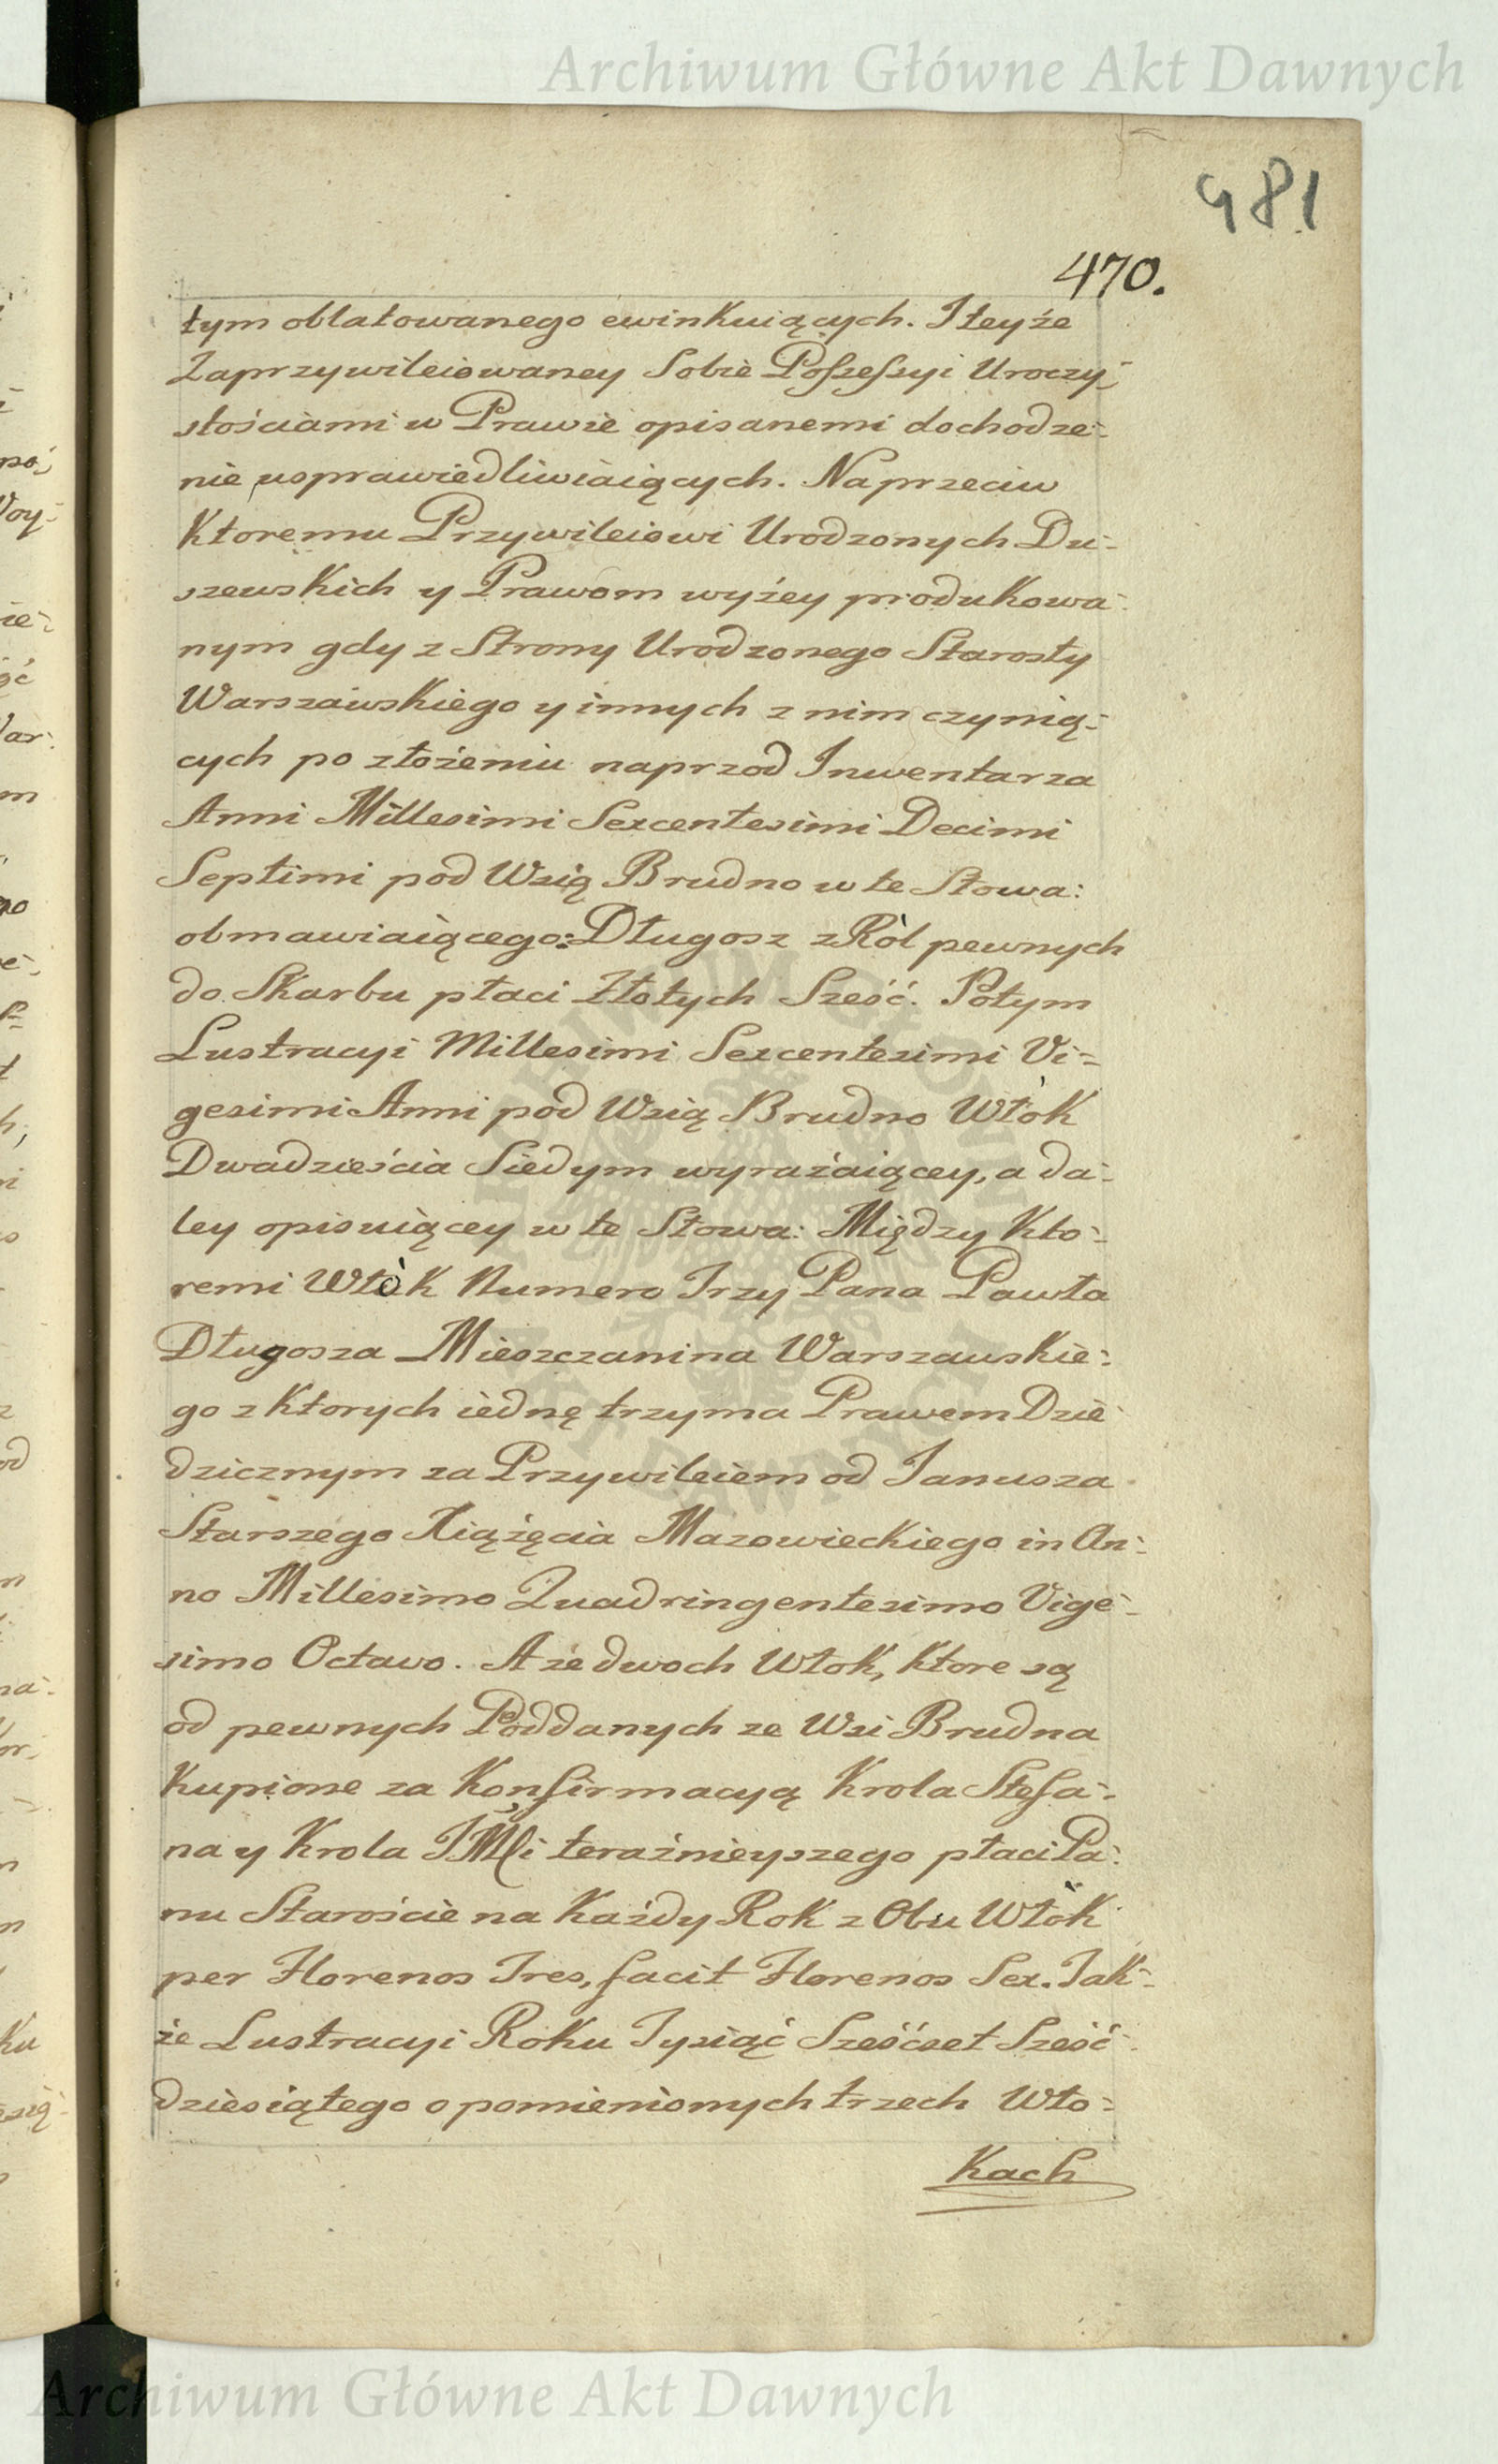 Archiwum Główne Akt Dawnych
481
470.
tym oblatowanego ewinkuiących. I teyże
Zaprzywileiowaney Sobie Possessyi Uroczy-
stościami w Prawie opisanemi dochodze-
nie usprawiedliwiaiących. Naprzeciw
Ktoremu Przywileiowi Urodzonych Du-
szewskich y Prawom wyżey produkowa-
nym gdy z Strony Urodzonego Starosty
Warszawskiego y innych z nim czynią-
cych po złożeniu naprzod Inwentarza
Anni Millesimi Sexcentesimi Decimi
Septimi pod Wsią Brudno w te Słowa:
obmawiaiącego: Długosz z Ról pewnych
do Skarbu płaci Złotych Sześć. Potym
Lustracyi Millesimi Sexcentesimi Vi-
gesimi Anni pod Wsią Brudno Włòk
Dwadzieścia Siedym wyrażaiącey, a da-
ley opisuiącey w te Słowa: Między Kto-
remi Włòk Numero Trzy Pana Pawła
Długosza Mieszczanina Warszawskie-
go z Ktorych iednę trzyma Prawem Dzie-
dzicznym za Przywileiem od Janusza
Starszego Xiążęcia Mazowieckiego in An-
no Millesimo Quadringentesimo Vige-
simo Octavo. A ze dwoch Włok, Ktore są
od pewnych Poddanych ze Wsi Brudna
Kupione za Konfirmacyą Krola Stefa-
na y Krola JMCi teraźnieyszego płaci Pa-
nu Staroście na Każdy Rok z Obu Włòk
per Florenos Tres, facit Florenos Sex. Tak-
że Lustracyi Roku Tysiąć Sześćset Sześć-
dziesiątego o pomienionych trzech Wło-
Kach
Archiwum Główne Akt Dawnych